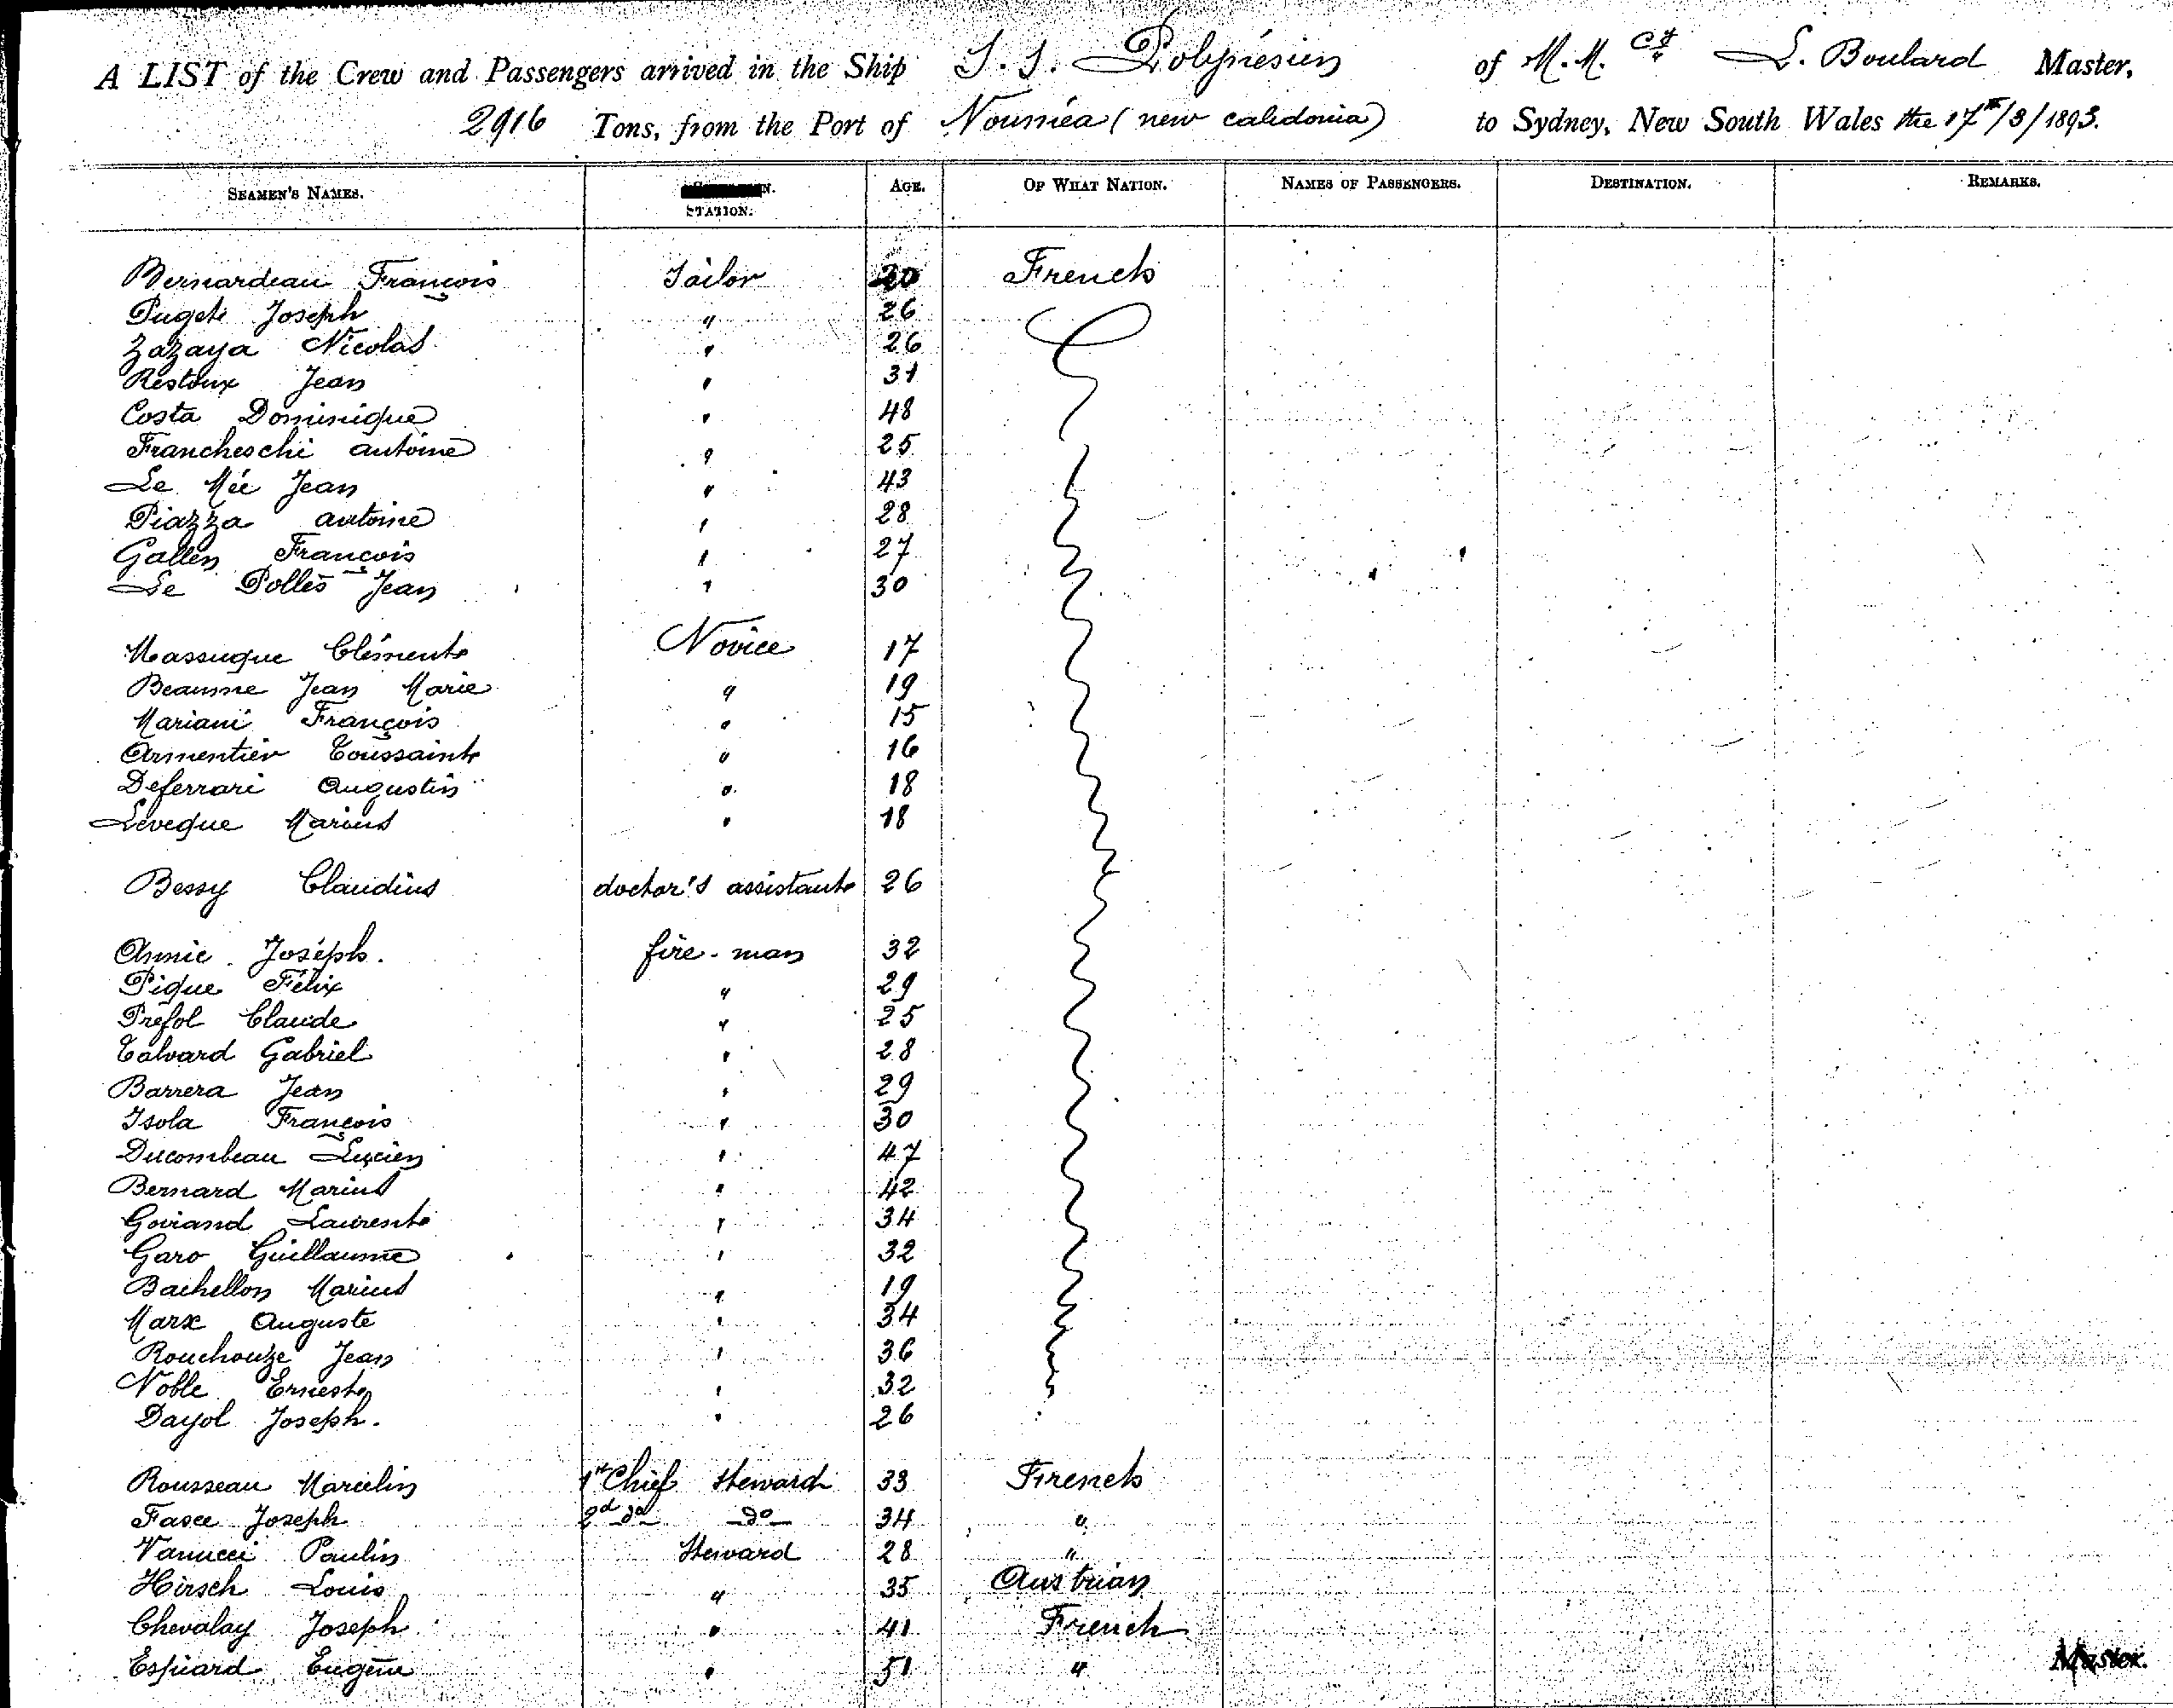 A LIST of the Crew and Passengers arrived in the Ship S. S. Polynésien of M. M. Cy L. Boulard Master,
2916 Tons, from the Port of Nouméa (new caledonia) to Sydney, New South Wales the 17th/3/1893.
SEAMEN'S NAMES. STATION. AGE. OF WHAT NATION. NAMES OF PASSENGERS. DESTINATION. REMARKS.
Bernardeau François Sailor 20 French
Puget Joseph " 26
Zazaya Nicolas " 26
Restoux Jean " 31
Costa Dominique " 48
Francheschi antoine " 25
Le Mée Jean " 43
Piazza antoine " 28
Gallen François " 27
Le Pollès Jean " 30
Massugue Clément Novice 17
Beaume Jean Marie " 19
Mariani François " 15
Armentier Toussaint " 16
Deferrari Augustin " 18
Leveque Marius " 18
Bessy Claudius doctor's assistant 26
Amic Joseph. fire-man 32
Pique Félix " 29
Préfol Claude " 25
Talvard Gabriel " 28
Barrera Jean " 29
Isola François " 30
Ducombeau Lucien " 47
Bernard Marius " 42
Goirand Laurent " 34
Garo Guillaume " 32
Bachellon Marius " 19
Marx Auguste " 34
Rouchouze Jean " 36
Noble Ernest " 32
Dayol Joseph. " 26
Rousseau Marcelin 1st Chief steward 33 French
Fasce Joseph 2d do do 34 "
Vanucci Paulin Steward 28 "
Hirsch Louis " 35 Austrian
Chevalay Joseph " 41 French
Espiard Eugène " 51 "
Master.